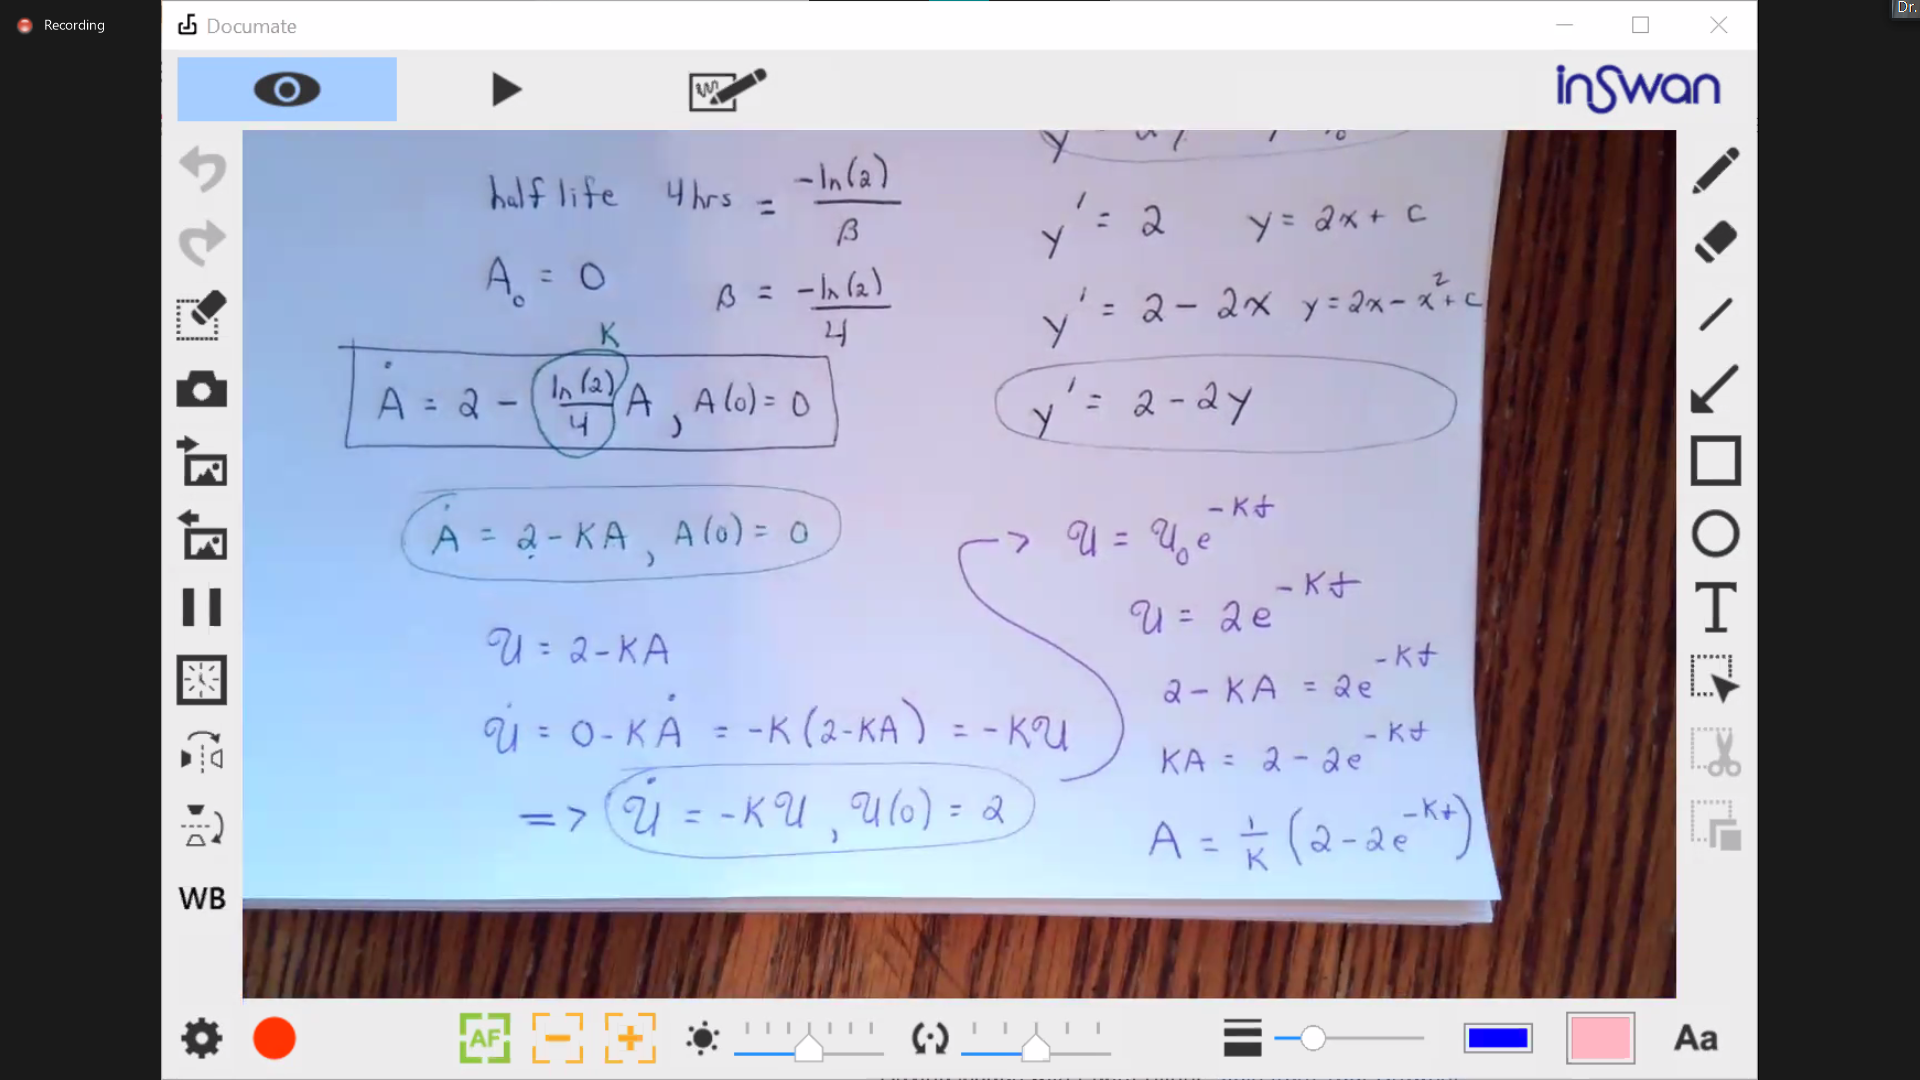 Recording
Dr.
Documate
inSwan
half life 4 hrs = -ln(2)/β
A₀ = 0
β = -ln(2)/4
K
Ȧ = 2 - ln(2)/4 A, A(0) = 0
Ȧ = 2 - KA, A(0) = 0
U = 2 - KA
U̇ = 0 - KȦ = -K(2-KA) = -KU
=> U̇ = -KU, U(0) = 2
y' = 2 y = 2x + c
y' = 2 - 2x y = 2x - x² + c
y' = 2 - 2y
-> U = U₀e^-Kt
U = 2e^-Kt
2 - KA = 2e^-Kt
KA = 2 - 2e^-Kt
A = 1/K (2 - 2e^-Kt)
T
WB
AF
Aa